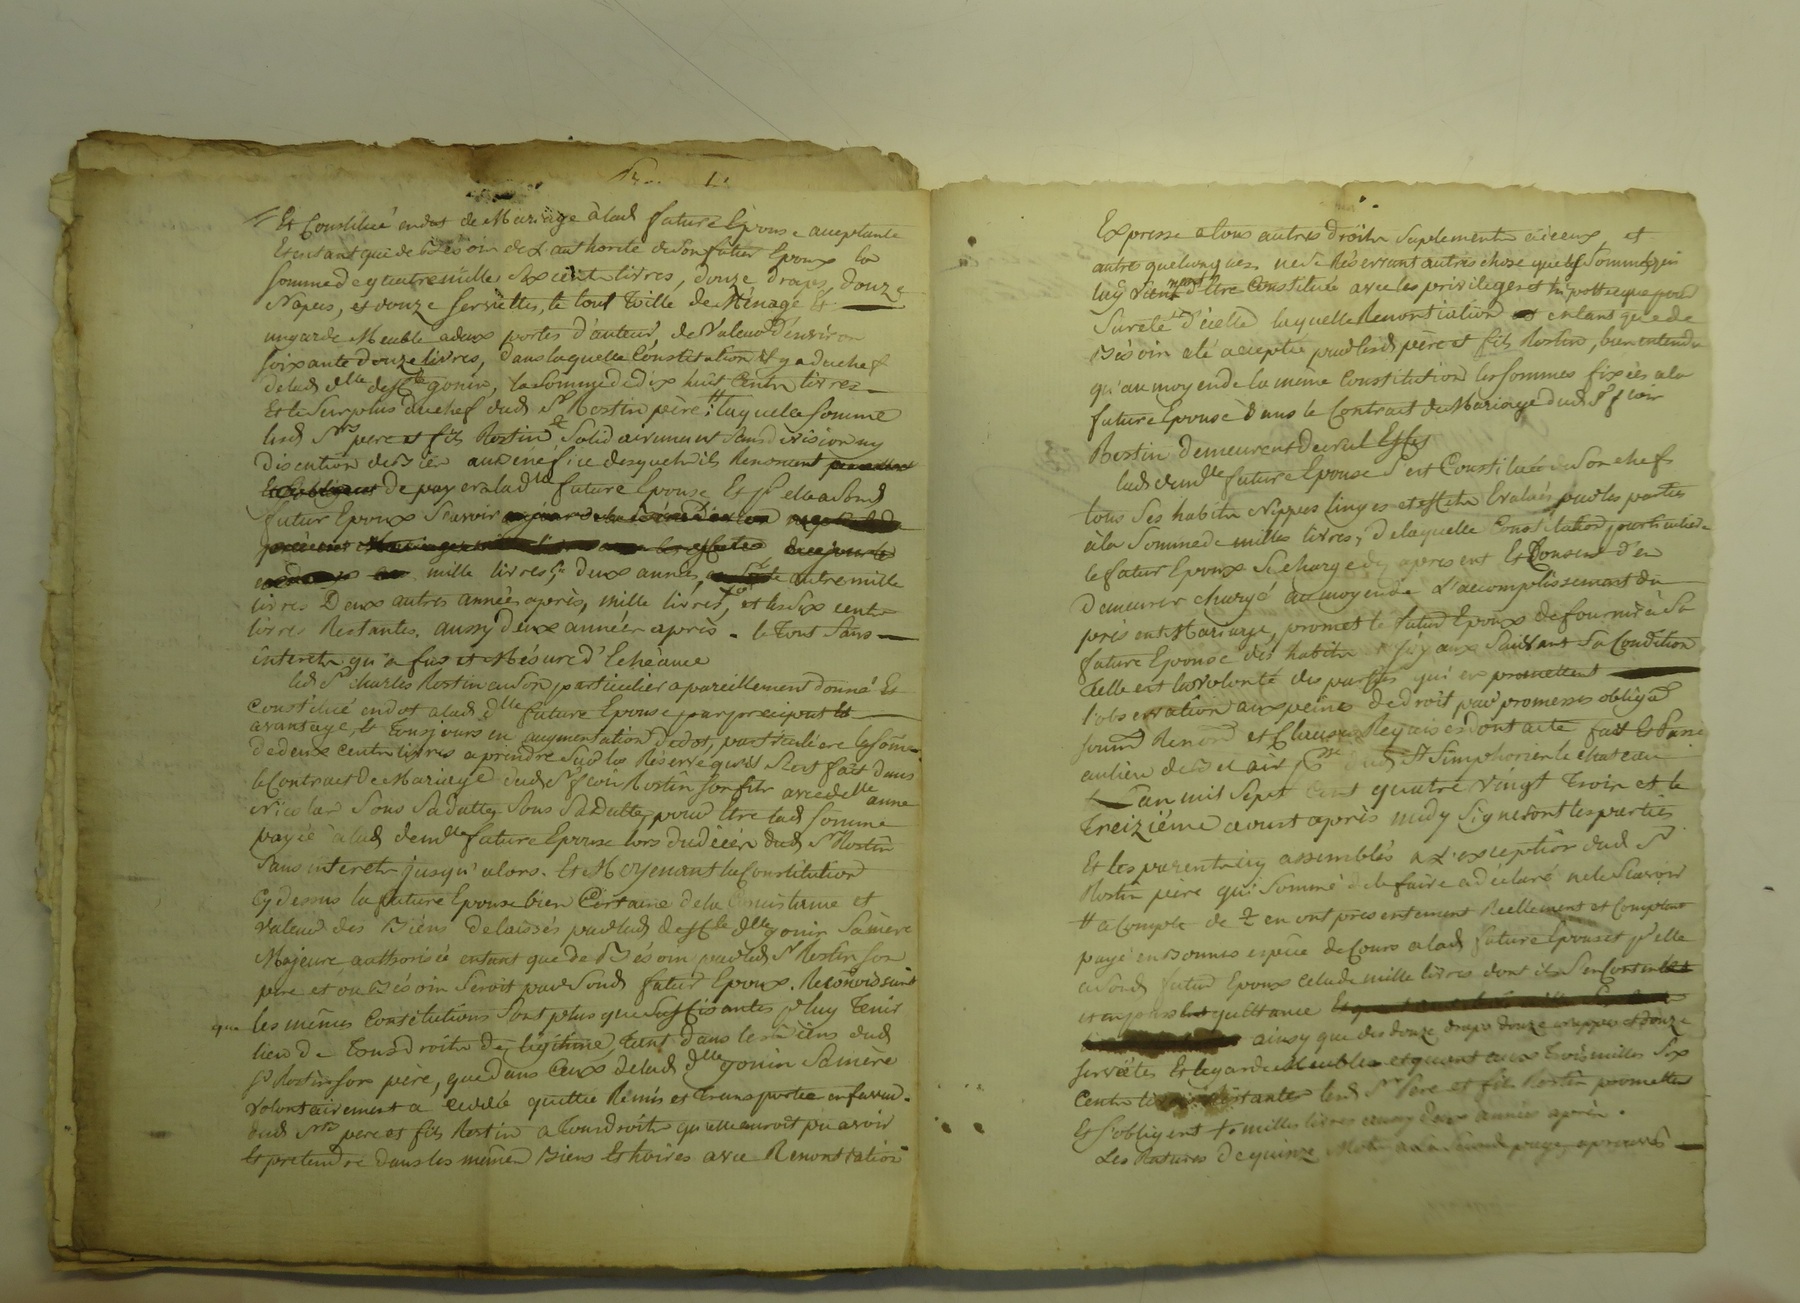 Et Constitué en dot de Mariage à lad future Epouse acceptante
Et entant que de besoin de L'authorité de son futur Epoux la
somme de quatre mille six cent livres, douze draps, douze
Napes, et douze serviettes, le tout toille de Ménage Et
un garde Meuble a deux portes d'auteur, de valeur d'environ
soixante douze livres, dans laquelle Constitution il y a du chef
de lad dlle gonin, la somme de dix huit Cents livres
Et le surplus du chef dud Sr Rostin père : # laquelle somme
lesd Srs père et fils Rostin Solidairement sans division ny
discution de Bien au Bénéfice desquels ils Renoncent
de payer a lad dlle future Epouse Et pr elle a sond
futur Epoux Scavoir
mille livres, deux années autre mille
livres Deux autres années après, mille livres, et les six cents
livres Restantes, aussy deux années après. le Tout Sans
interets qu'a fur et Mésure d'Echéance
led Sr charles Rostin en son particulier a pareillement donné Et
Constitué en dot a lad dlle future Epouse par preciput Et
avantage, Et Toujours en augmentation de dot, particulière la some
de deux cents livres a prendre sur la Réserve qu'il s'est fait dans
le Contract de Mariage dud Sr fcois Rostin son fils avec dlle anne
Nicolas Sous Sa datte, Sous Sa Datte, pour être lad somme
payée a lad demlle future Epouse lors du décès dud Sr Rostin
Sans interets jusqu'alors. Et Moyenant la Constitution
Cy dessus la future Epouse bien Certaine de la Consistance et
Valeur des Biens delaissés par lad dlle gonin Sa mère
Majeure authorisée entant que de Bésoin par led Sr Rostin son
père et ou Bésoin seroit par sond futur Epoux. Reconoissant
que les mêmes Constitutions sont plus que suffisantes pr luy Tenir
lieu de Tous droits de legitime, tant dans les Biens dud
Sr Rostin son père, que dans Ceux de lad dlle gonin Sa mère
volontairement a cedée quittée Remis et Transportée en faveur
dud Srs père et fils Rostin a Tous droits qu'elle auroit pu avoir
Et pretendre dans les mêmes Biens Et hoiries avec Renontiation
Expresse a tous autres droits suplements d'iceux, et
autre quelconques ne se Réservant autres chose que les Sommes qui
luy viennent d'être Constituée avec les privileges et hipotheque pour
Sureté d'icelle laquelle Renontiation et entant que de
Bésoin a été acceptée par lesd père et fils Rostin, bien entendu
qu'au moyen de la même Constitution les sommes fixées a la
future Epouse dans le Contrat de Mariage dud Sr fcois
Rostin Demeurent de nul Effet
lad demlle future Epouse S'est Constituée de son chef
tous Ses habits Nippes linges et effets Evalués par les parties
à la Somme de milles livres, de laquelle Constitution particuliere
le futur Epoux Se charge dès apresent Et Consent d'en
Demeurer chargé au moyen de L'acomplissement du
present Mariage, promet le futur Epoux de fournir à Sa
future Epouse des habits Suivant Sa Condition
Telle est la volonté des parties qui en promettent
l'observation aux peines de droit par promesses obligaon
soumon Renonon et Clauses Requises dont acte fait Et Passé
au lieu de Bel air St Simphorien le chateau
L'an mil Sept Cent quatre vingt trois et le
Treizième aoust après midy Signeront les parties
Et les parents icy assemblés a L'exception dud Sr
Rostin père qui Sommé de le faire a déclaré ne le Scavoir
# a Compte de en ont presentement Reellement et Comptant
payé en Bonnes espèce de Cours a lad future Epouse Et pr elle
a sond futur Epoux celude mille livres dont ils Sen Contentent
et en passent quittance
ainsy que des douze draps douze nappes et douze
serviétes Et le garde Meubles et quant aux Trois milles Six
Cents livres Restantes lesd Srs Père et fils Rostin promettent
Et s'obligent + milles livres aussy deux années après.
Les Ratures de quinze Mots a la seconde page aprouvés